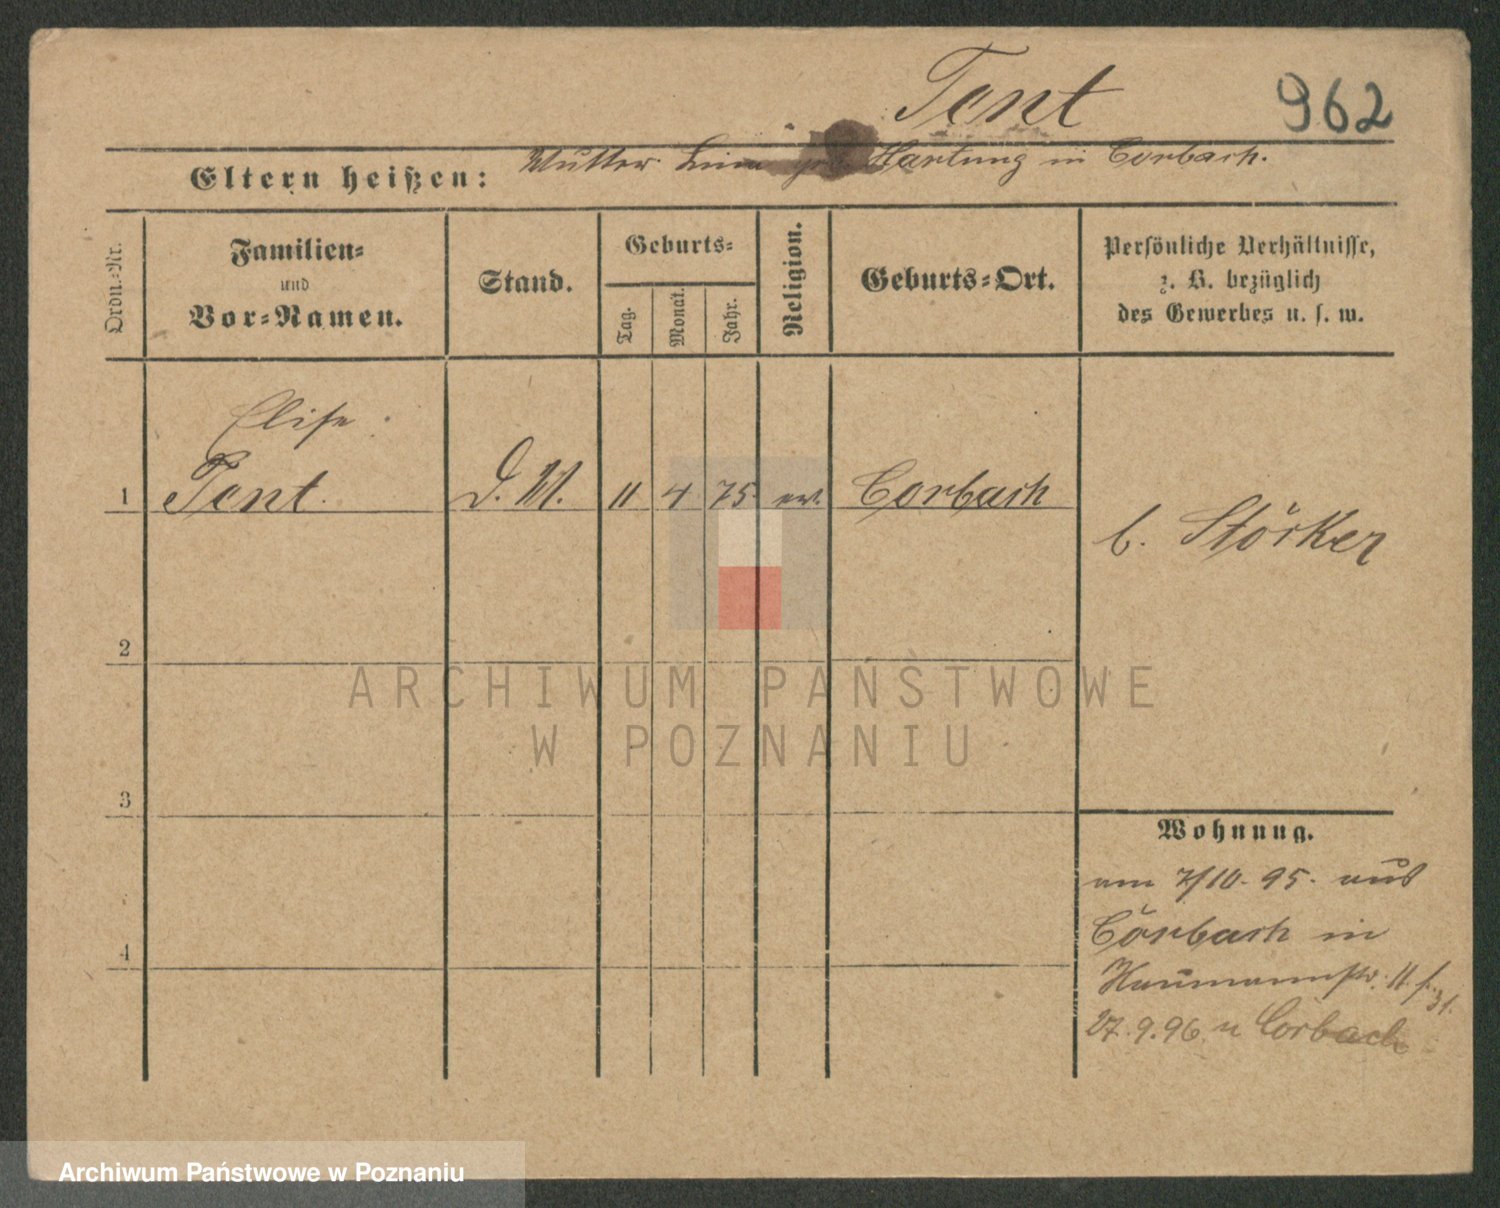 Tent 962
Eltern heißen: Mutter Lina geb. Hartung in Corbach.
Ordn.-Nr.
Familien-
und
Vor-Namen.
Stand.
Geburts-
Tag.
Monat.
Jahr.
Religion.
Geburts-Ort.
Persönliche Verhältnisse,
z. B. bezüglich
des Gewerbes u. s. w.
Elise
1 Tent. D. M. 11 4 75. ev. Corbach
b. Störker
2
3
4
Wohnung.
am 7/10. 95. aus
Corbach in
Naumannstr. 11
27.9.96 n Corbach
ARCHIWUM PAŃSTWOWE
W POZNANIU
Archiwum Państwowe w Poznaniu